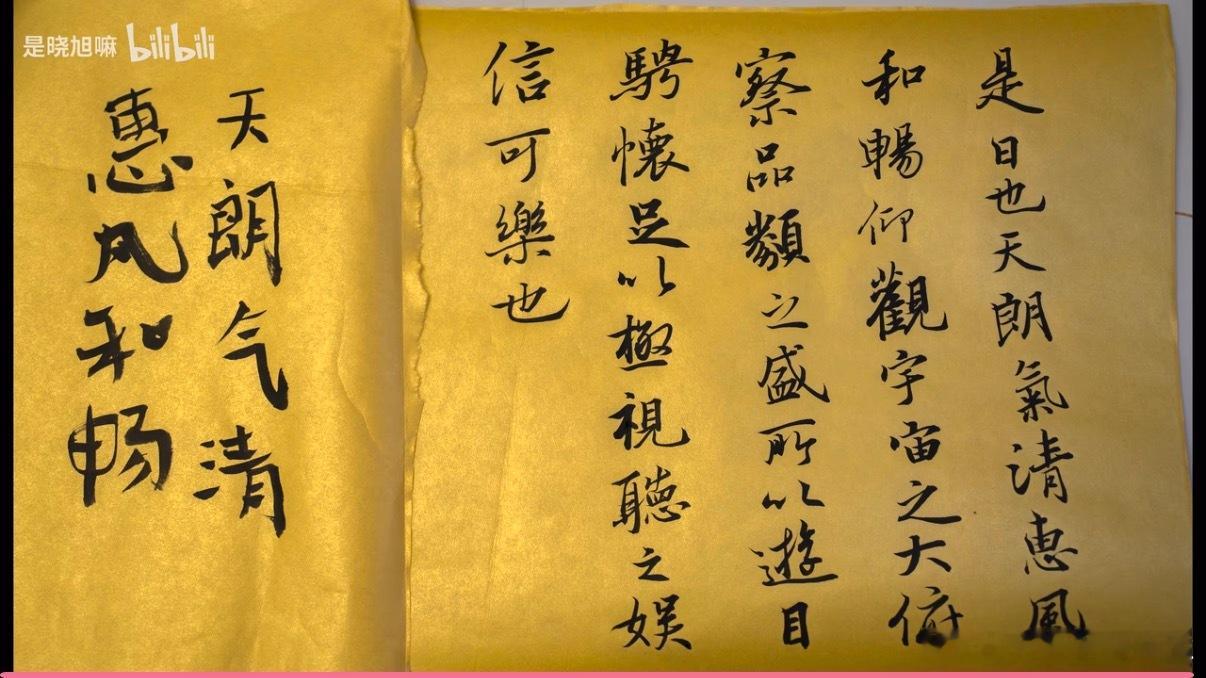 是晓旭嘛 bilibili
是日也天朗氣清惠風
和暢仰觀宇宙之大俯
察品類之盛所以遊目
騁懷足以極視聽之娱
信可樂也
天朗气清
惠风和畅